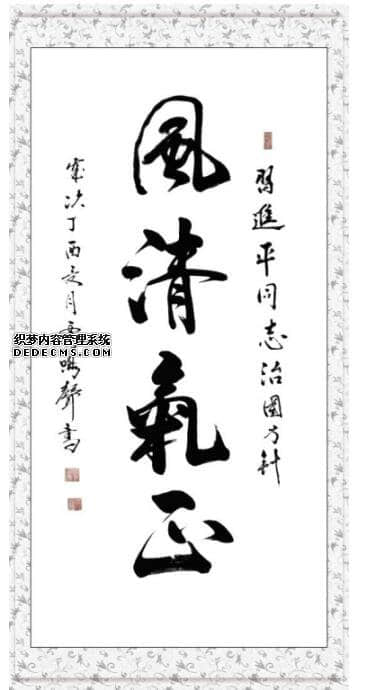 習進平同志治國方針
風清氣正
歲次丁酉月書
织梦内容管理系统
DEDECMS.COM